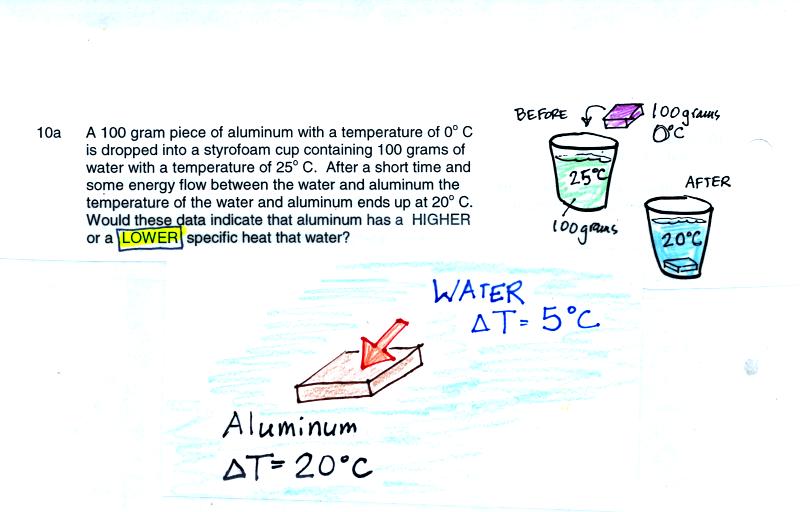 10a A 100 gram piece of aluminum with a temperature of 0° C
is dropped into a styrofoam cup containing 100 grams of
water with a temperature of 25° C. After a short time and
some energy flow between the water and aluminum the
temperature of the water and aluminum ends up at 20° C.
Would these data indicate that aluminum has a HIGHER
or a LOWER specific heat that water?
BEFORE
100 grams
0°C
25°C
100 grams
AFTER
20°C
WATER
ΔT= 5°C
Aluminum
ΔT= 20°C